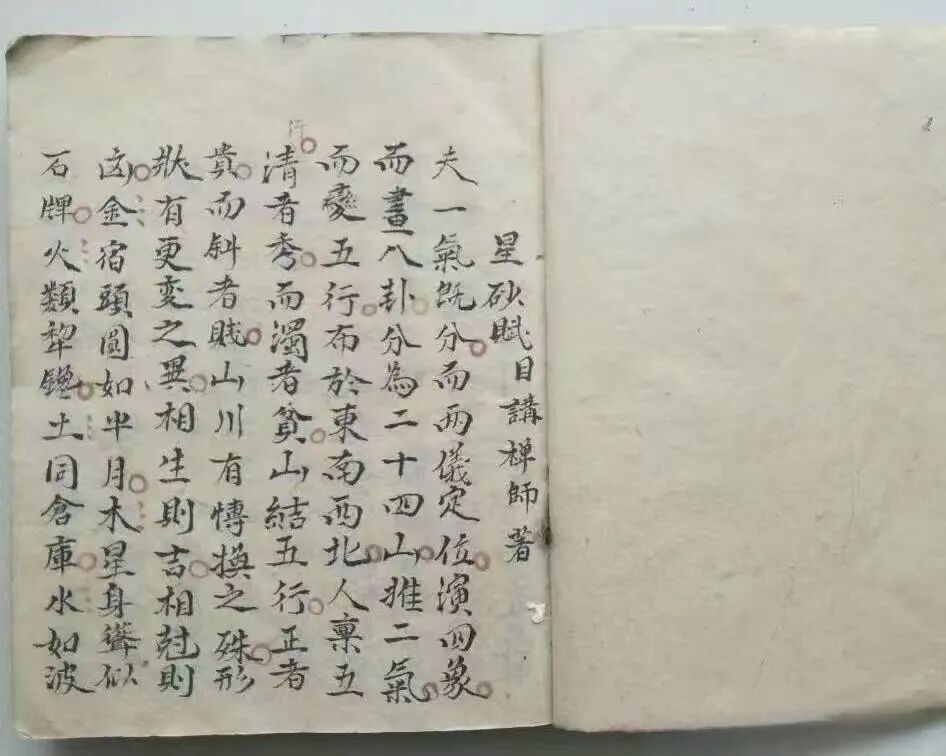 星砂賦目講禅師著
夫一氣既分而两儀定位演四象
而畫八卦分為二十四山推二氣
而變五行布於東南西北人禀五
行
清者秀而濁者貧山結五行正者
貴而斜者賎山川有愽換之殊形
狀有更变之異相生則吉相尅則
凶金宿頭圓如半月木星身聳似
石牌火類犂鑱土同倉庫水如波